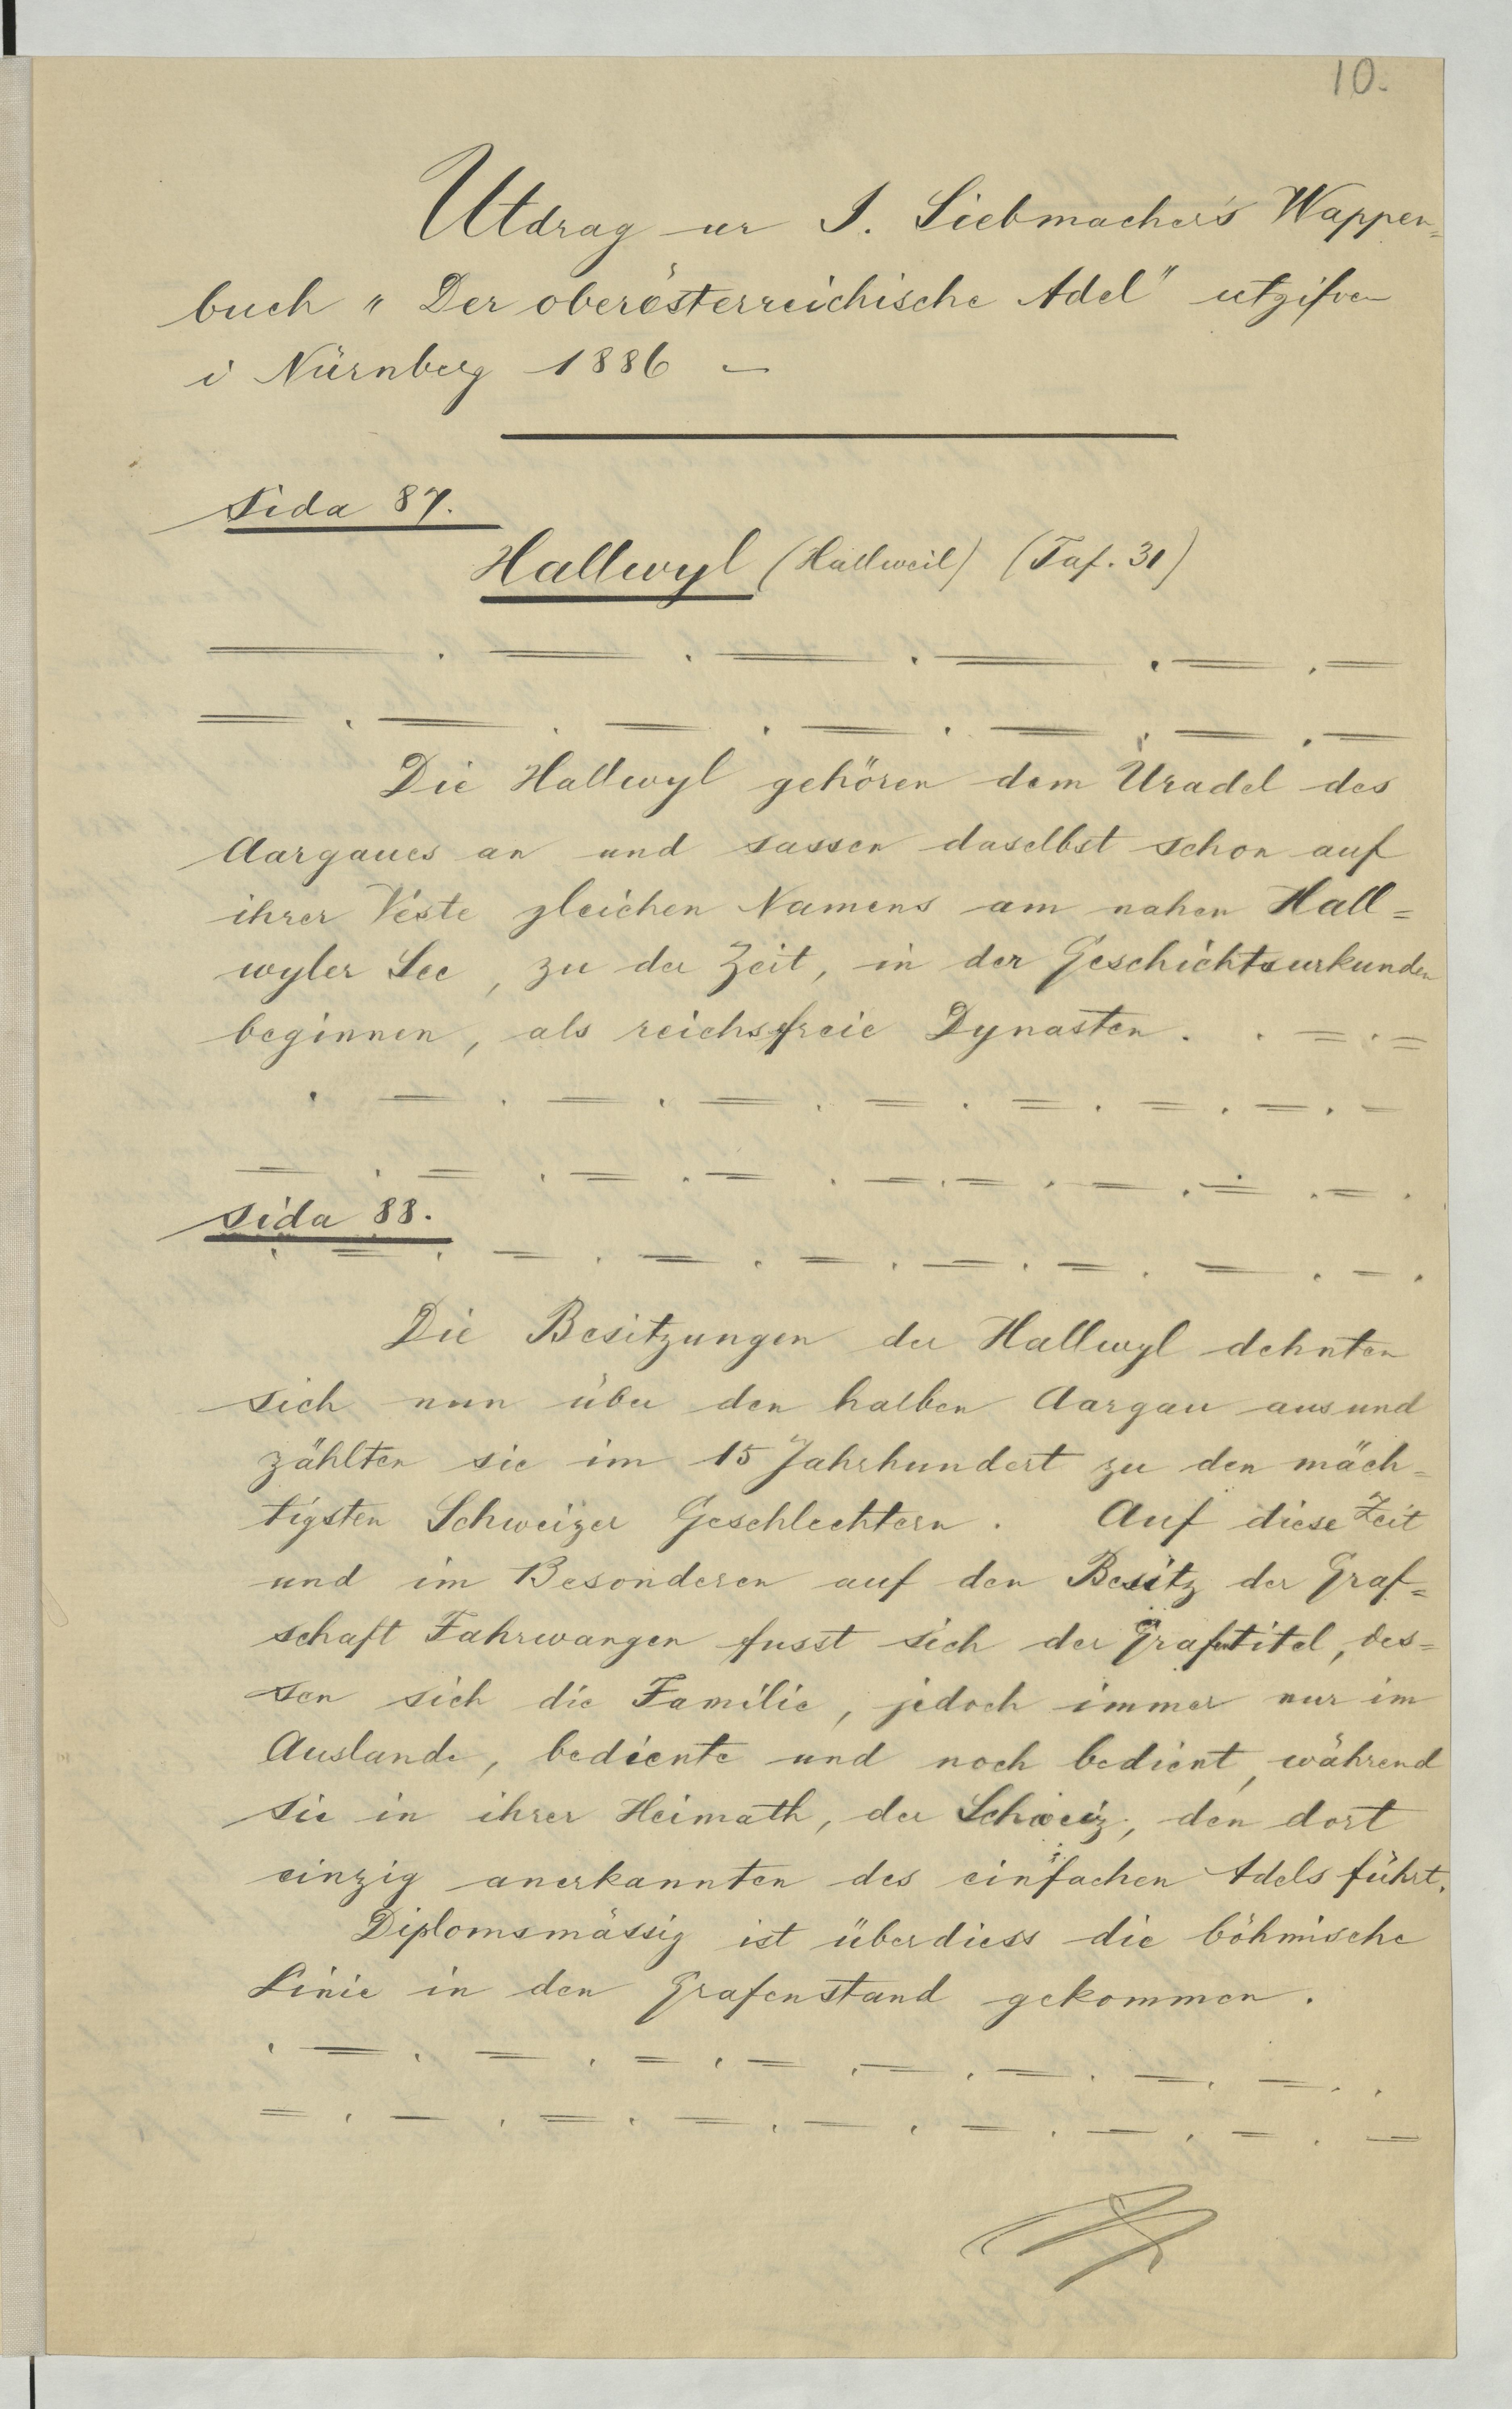 10.
Utdrag ur J. Siebmacher's Wappen=
buch "Der oberösterreichische Adel" utgifven
i Nürnberg 1886 –
Sida 87.
Hallwyl (Hallweil) (Taf. 31)
Die Hallwyl gehören dem Uradel des
Aargaues an und sassen daselbst schon auf
ihrer Veste gleichen Namens am nahen Hall=
wyler See, zu der Zeit, in der Geschichtsurkunden
beginnen, als reichsfreie Dynasten.
Sida 88.
Die Besitzungen der Hallwyl dehnten
sich nun über den halben Aargau aus und
zählten sie im 15 Jahrhundert zu den mäch=
tigsten Schweizer Geschlechtern. Auf diese Zeit
und im Besonderen auf den Besitz der Graf=
schaft Fahrwangen fusst sich der Grafentitel, des=
sen sich die Familie, jedoch immer nur im
Auslande, bediente und noch bedient, während
sie in ihrer Heimath, der Schweiz, den dort
einzig anerkannten des einfachen Adels führt.
Diplomsmässig ist überdiess die böhmische
Linie in den Grafenstand gekommen.